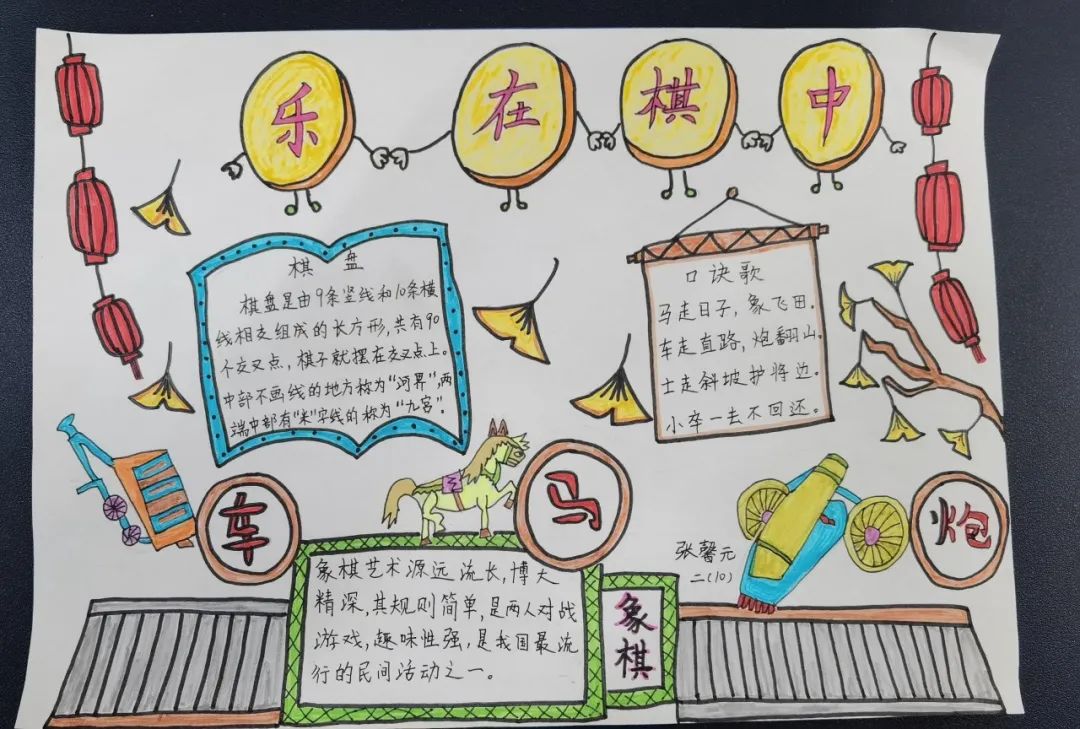 乐在棋中
棋盘
棋盘是由9条竖线和10条横
线相支组成的长方形,共有90
个交叉点,棋子就摆在交叉点上。
中部不画线的地方称为“河界”,两
端中部有“米”字线的称为“九宫”.
口诀歌
马走日子,象飞田.
车走直路,炮翻山.
士走斜坡护将边.
小卒一去不回还。
车
马
炮
张馨元
二(10)
象棋艺术源远流长,博大
精深,其规则简单,是两人对战
游戏,趣味性强,是我国最流
行的民间活动之一。
象
棋